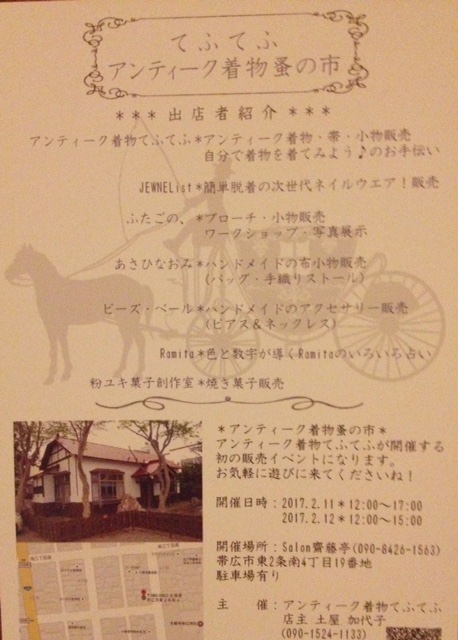 てふてふ
アンティーク着物蚤の市
*** 出店者紹介 ***
アンティーク着物てふてふ*アンティーク着物・帯・小物販売
自分で着物を着てみよう♪のお手伝い
JEWNEList*簡単脱着の次世代ネイルウエア！販売
ふたごの、*ブローチ・小物販売
ワークショップ・写真展示
あさひなおみ*ハンドメイドの布小物販売
(バッグ・手織りストール)
ビーズ・ベール*ハンドメイドのアクセサリー販売
(ピアス＆ネックレス)
Ramita*色と数字が導くRamitaのいろいろ占い
粉ユキ菓子創作室*焼き菓子販売
*アンティーク着物蚤の市*
アンティーク着物てふてふが開催する
初の販売イベントになります。
お気軽に遊びに来てくださいね！
開催日時：2017.2.11*12:00～17:00
2017.2.12*12:00～15:00
開催場所：Salon齋藤亭(090-8426-1563)
帯広市東2条南4丁目19番地
駐車場有り
主　催：アンティーク着物てふてふ
店主 土屋 加代子
(090-1524-1133)